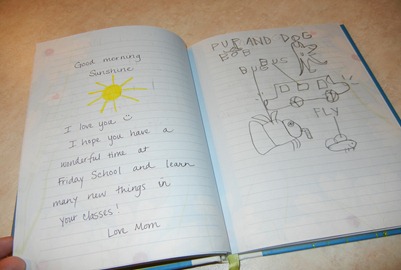 Good morning
Sunshine
I love you
I hope you have a
wonderful time at
Friday School and learn
many new things in
your classes!
Love Mom
PUP AND DOG
BOB
BUG BUS
FLY